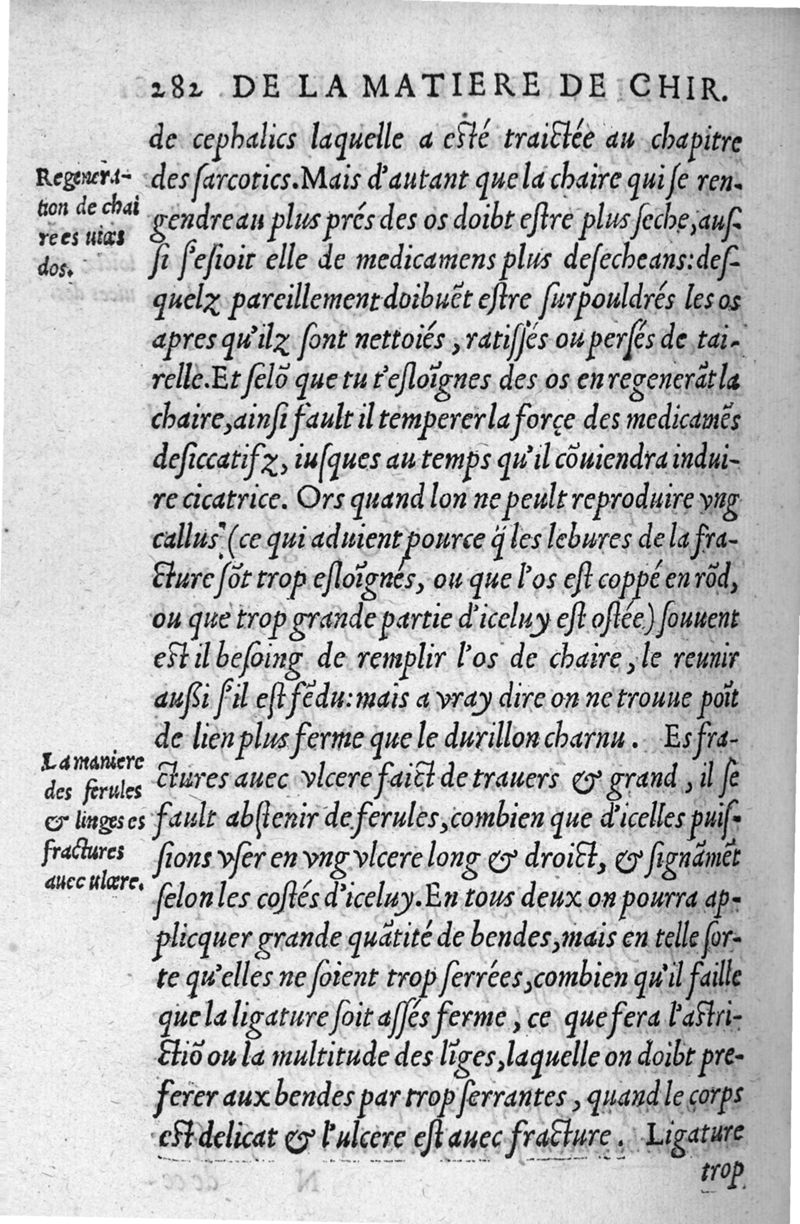 282 DE LA MATIERE DE CHIR.
de cephalics laquelle a esté traictée au chapitre
Regenera-
tion de chai
re es uiæs
dos.
des sarcotics. Mais d'autant que la chaire qui se ren-
gendre au plus prés des os doibt estre plus seche, aus-
si s'esioit elle de medicamens plus desecheans: des-
quelz pareillement doibuẽt estre surpouldrés les os
apres qu'ilz sont nettoiés, ratissés ou persés de tai-
relle. Et selõ que tu t'esloĩgnes des os en regenerãt la
chaire, ainsi fault il temperer la força des medicamẽs
desiccatifz, iusques au temps qu'il cõuiendra indui-
re cicatrice. Ors quand lon ne peult reproduire vng
callus, (ce qui aduient pource q̃ les lebures de la fra-
cture sõt trop esloĩgnés, ou que l'os est coppé en rõd,
ou que trop grande partie d'iceluy est ostée) souuent
est il besoing de remplir l'os de chaire, le reunir
aussi s'il est fẽdu: mais a vray dire on ne trouue poĩt
de lien plus ferme que le durillon charnu. Es fra-
La maniere
des ferules
& linges es
fractures
auec ulcere.
ctures auec vlcere faict de trauers & grand, il se
fault abstenir de ferules, combien que d'icelles puis-
sions vser en vng vlcere long & droict, & signãmẽt
selon les costés d'iceluy. En tous deux on pourra ap-
plicquer grande quãtité de bendes, mais en telle sor-
te qu'elles ne soient trop serrées, combien qu'il faille
que la ligature soit assés ferme, ce que fera l'astri-
ctiõ ou la multitude des lĩges, laquelle on doibt pre-
ferer aux bendes par trop serrantes, quand le corps
est delicat & l'ulcere est auec fracture. Ligature
trop